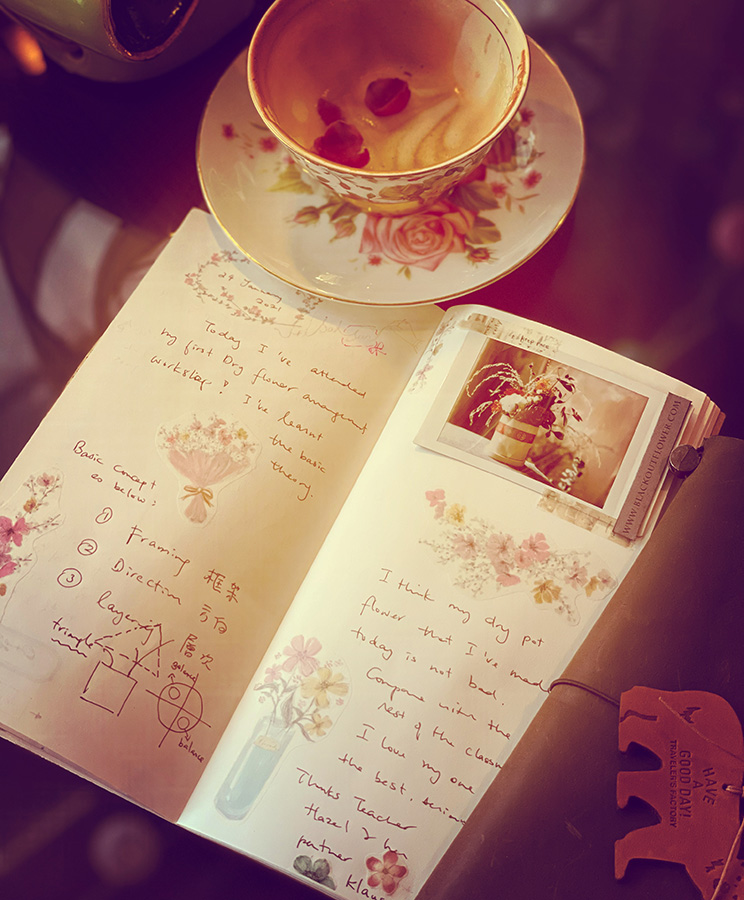 24 January
2021
Today I've attended
my first Dry flower arrangment
workshop! I've learnt
the basic
theory.
Basic Concept
as below:
① Framing 框架
② Direction 方向
③ layering 層次
triangle
balance
I think my dry pot
flower that I've made
today is not bad.
Compare with the
rest of the classm
I love my one
the best.
Thanks Teacher
Hazel & her
partner Klaus
WWW.BLACKOUTFLOWER.COM
HAVE
A
GOOD DAY!
TRAVELER'S FACTORY